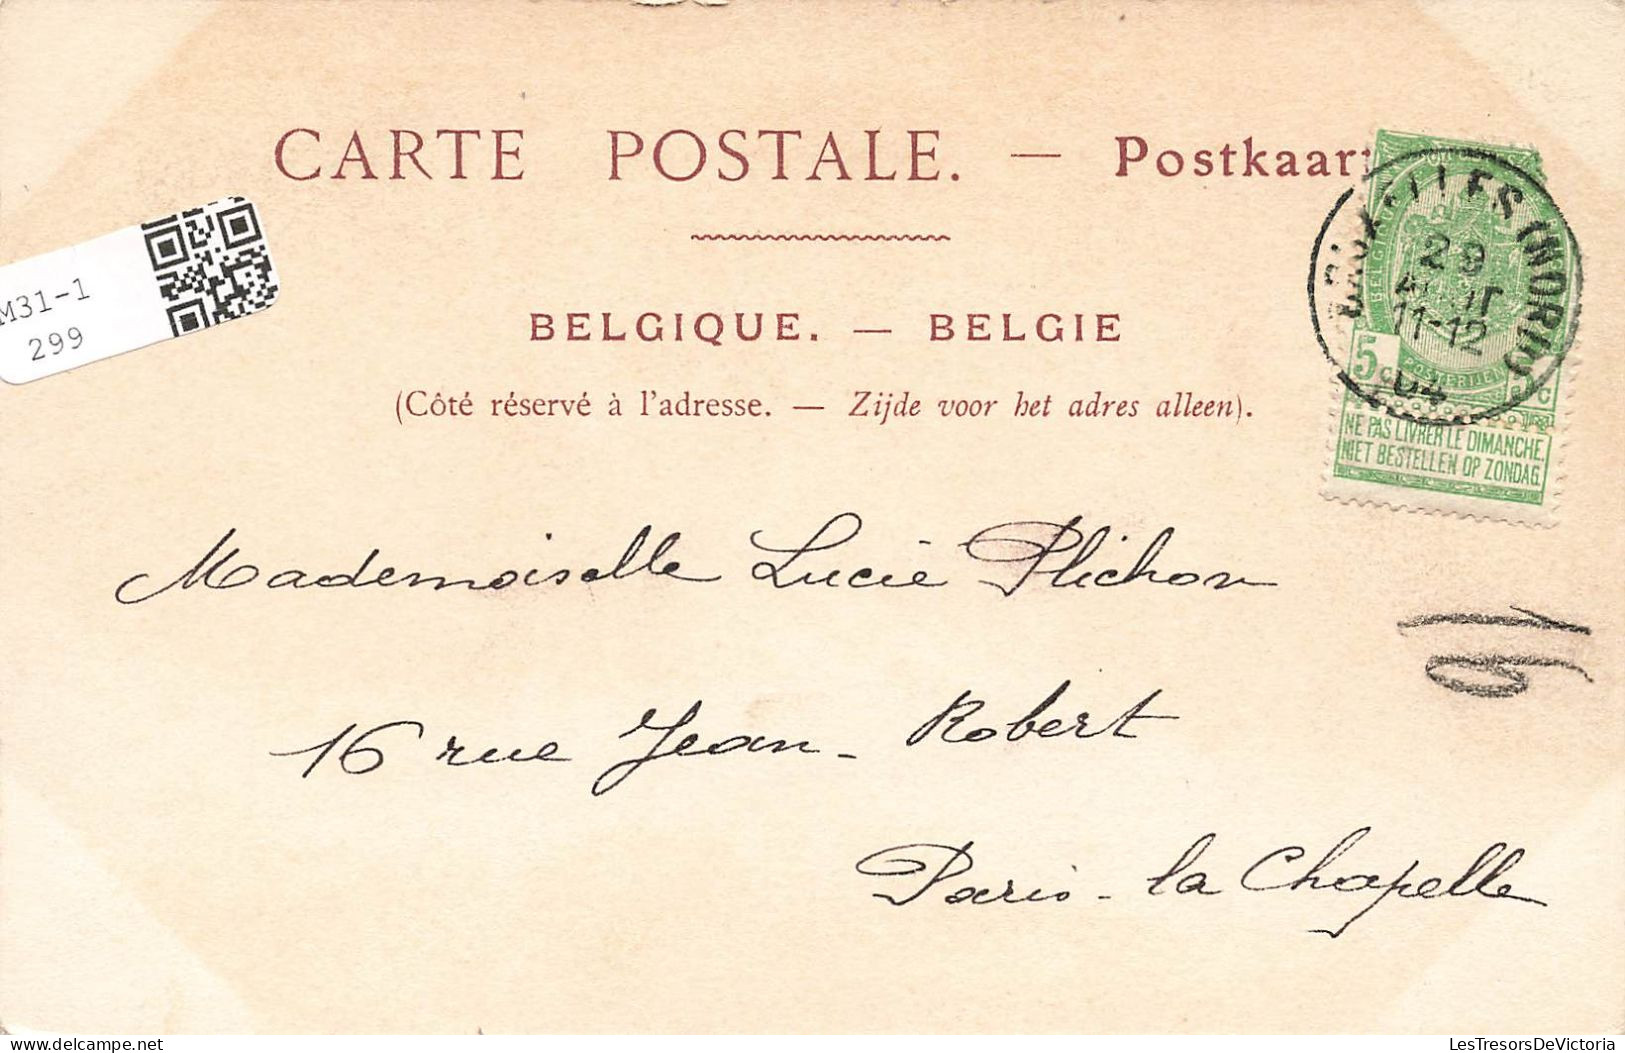 CARTE POSTALE. — Postkaart
M31-1
299
BELGIQUE. — BELGIE
(Côté réservé à l'adresse. — Zijde voor het adres alleen).
BRUXELLES (NORD)
29
AOUT
11-12
04
BELGIQUE
POSTERIJEN
5 c 5 c
NE PAS LIVRER LE DIMANCHE.
NIET BESTELLEN OP ZONDAG.
Mademoiselle Lucie Plichon
16 rue Jean-Robert
Paris-la Chapelle
LesTresorsDeVictoria
delcampe.net